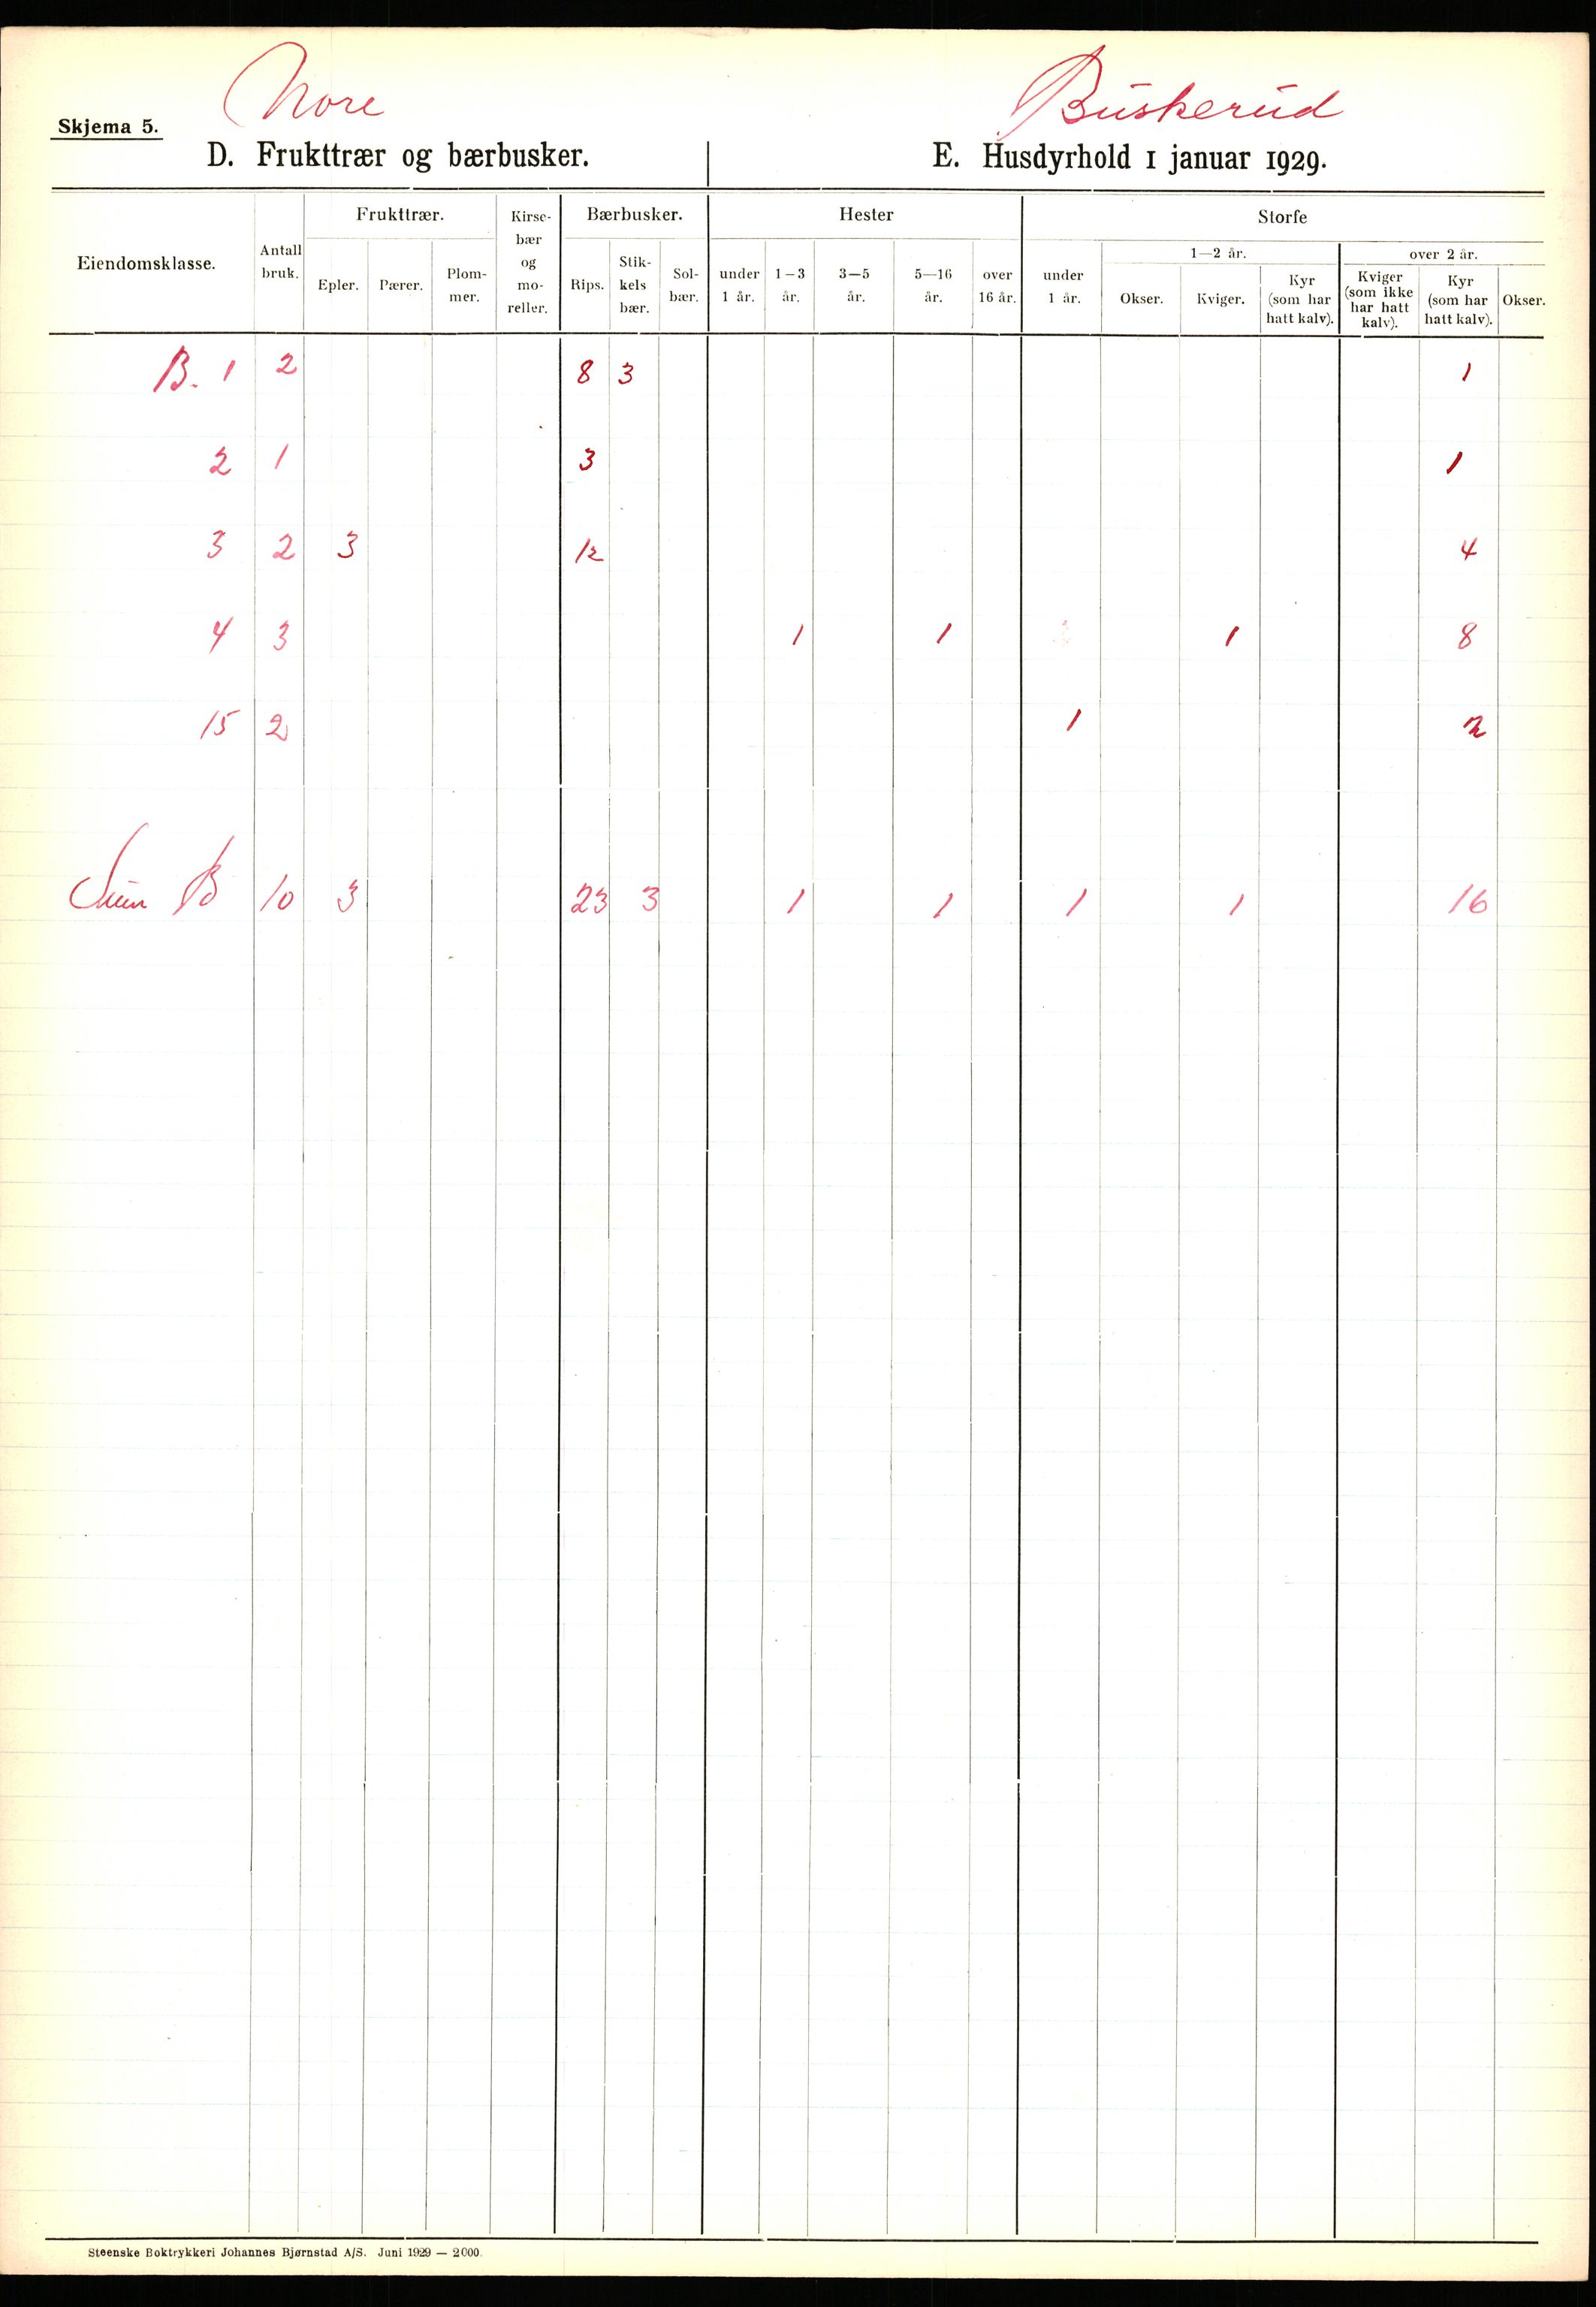 Nore Buskerud
Skjema 5.
D. Frukttrær og bærbusker. E. Husdyrhold 1 januar 1929.
Eiendomsklasse. Antall bruk. Frukttrær. Kirsebær og moreller. Bærbusker. Hester Storfe
Epler. Pærer. Plommer. Rips. Stikkels bær. Solbær. under 1 år. 1–3 år. 3–5 år. 5–16 år. over 16 år. under 1 år. 1–2 år. over 2 år.
Okser. Kviger. Kyr (som har hatt kalv). Kviger (som ikke har hatt kalv). Kyr (som har hatt kalv). Okser.
B. 1 2 8 3 1
2 1 3 1
3 2 3 12 4
4 3 1 1 1 8
15 2 1 2
Sum B 10 3 23 3 1 1 1 1 16
Steenske Boktrykkeri Johannes Bjørnstad A/S. Juni 1929 — 2000.